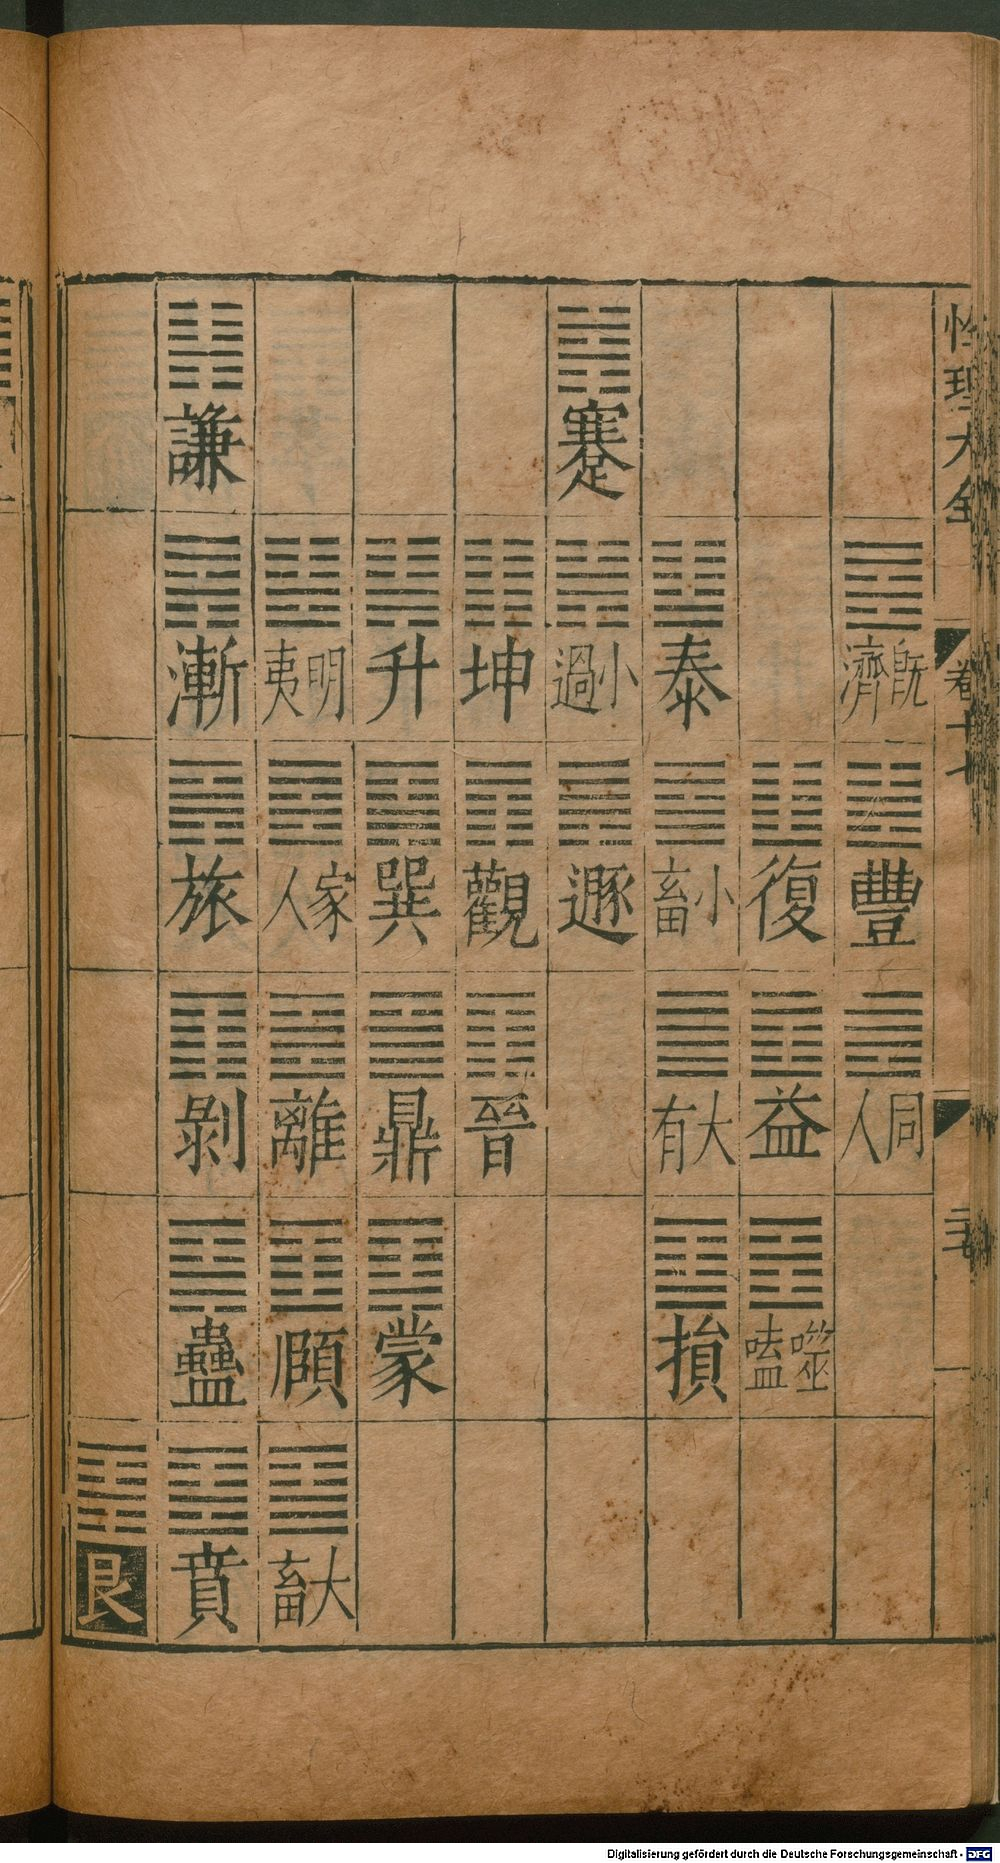 性理大全 卷十七 二七
既濟 豐 同人
復 益 噬嗑
泰 小畜 大有 損
蹇 小過 遯
坤 觀 晉
升 巽 鼎 蒙
明夷 家人 離 頤 大畜
謙 漸 旅 剝 蠱 賁
艮
Digitalisierung gefördert durch die Deutsche Forschungsgemeinschaft - DFG